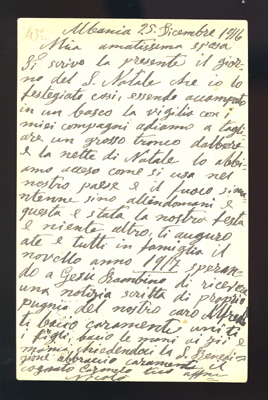 43a
Albania 25. Dicembre 1916
Mia amatissima sposa
Ti scrivo la presente il gior,
no del S. Natale che io lo
festegiato così, essendo accampato
in un bosco la vigilia con i
miei compagni adiamo a tagli
are un grosso tronco d'albero
e la notte di Natale lo abbi-
amo acceso come si usa nel
nostro paese e il fuoco si man
tenne sino all'endomani e
questa è stata la nostra festa
e niente altro, ti auguro
a te e tutti in famiglia il
novello anno 1917 speran-
do a Gesù Bambino di ricevere
una notizia scritta di proprio
pugnio del nostro caro Alfredo
ti bacio caramente uniti
i figli, bacio le mani a
mamà chiedendoci la S. Benedi-
zione abbraccio caramente il
cognato Carmelo tuo
Nicolò